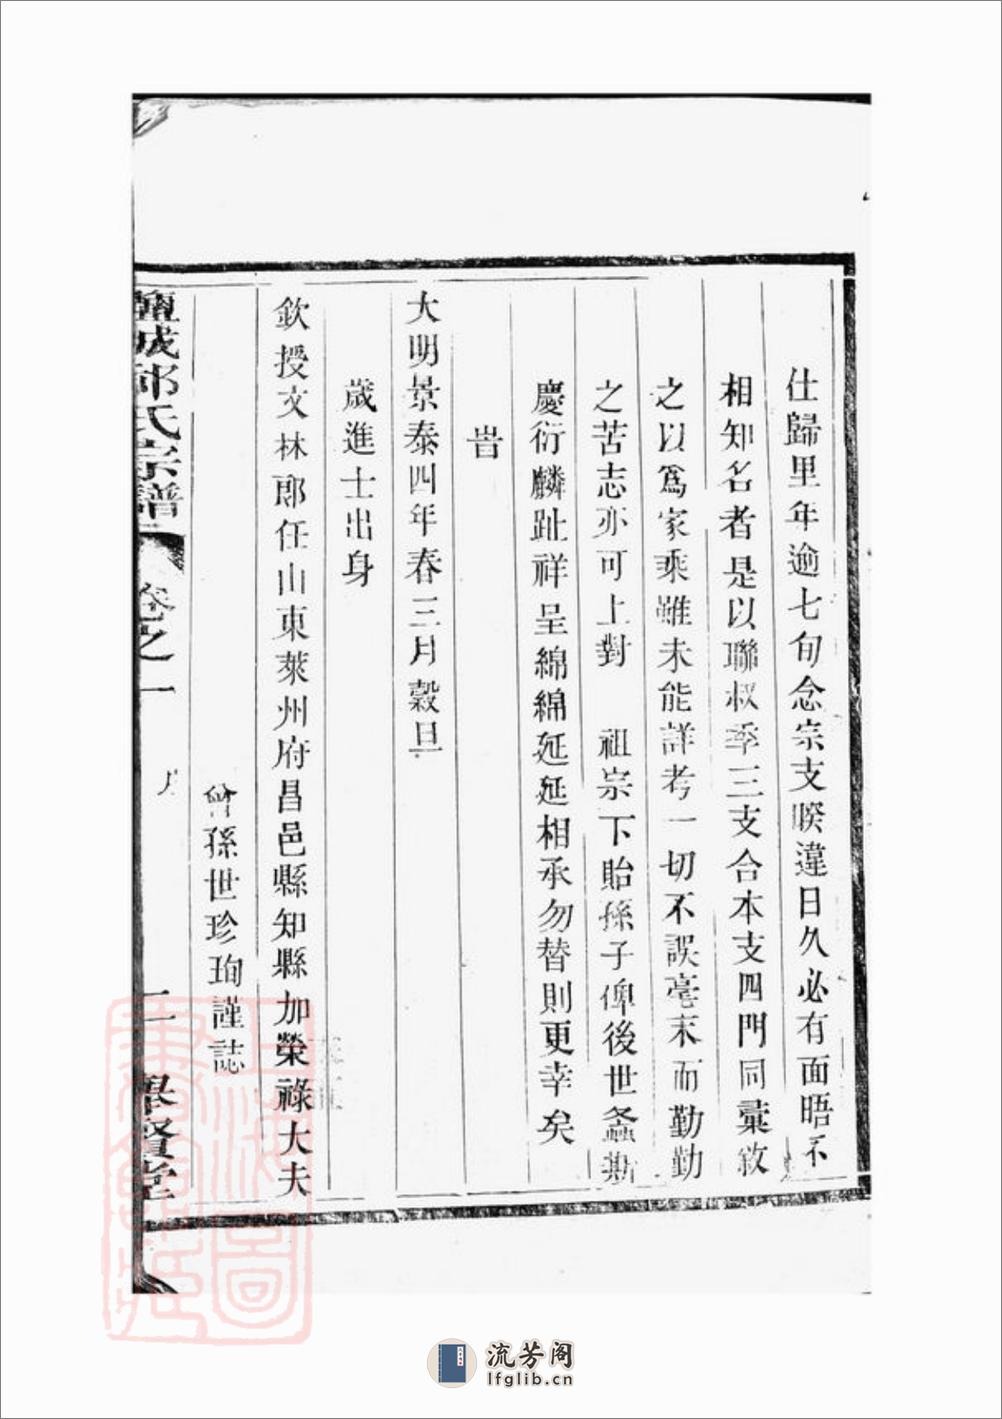 仕歸里年逾七旬念宗支暌違日久必有面晤不
相知名者是以聯叔季三支合本支四門同彙敘
之以爲家乘雖未能詳考一切不誤毫末而勤勤
之苦志亦可上對 祖宗下貽孫子俾後世螽斯
慶衍麟趾祥呈綿綿延延相承勿替則更幸矣
旹
大明景泰四年春三月穀旦
歲進士出身
欽授文林郎任山東萊州府昌邑縣知縣加榮祿大夫
曾孫世珍珣謹誌
鹽城邱氏宗譜 卷之一 二 賢堂
上海圖書館藏
流芳阁
lfglib.cn